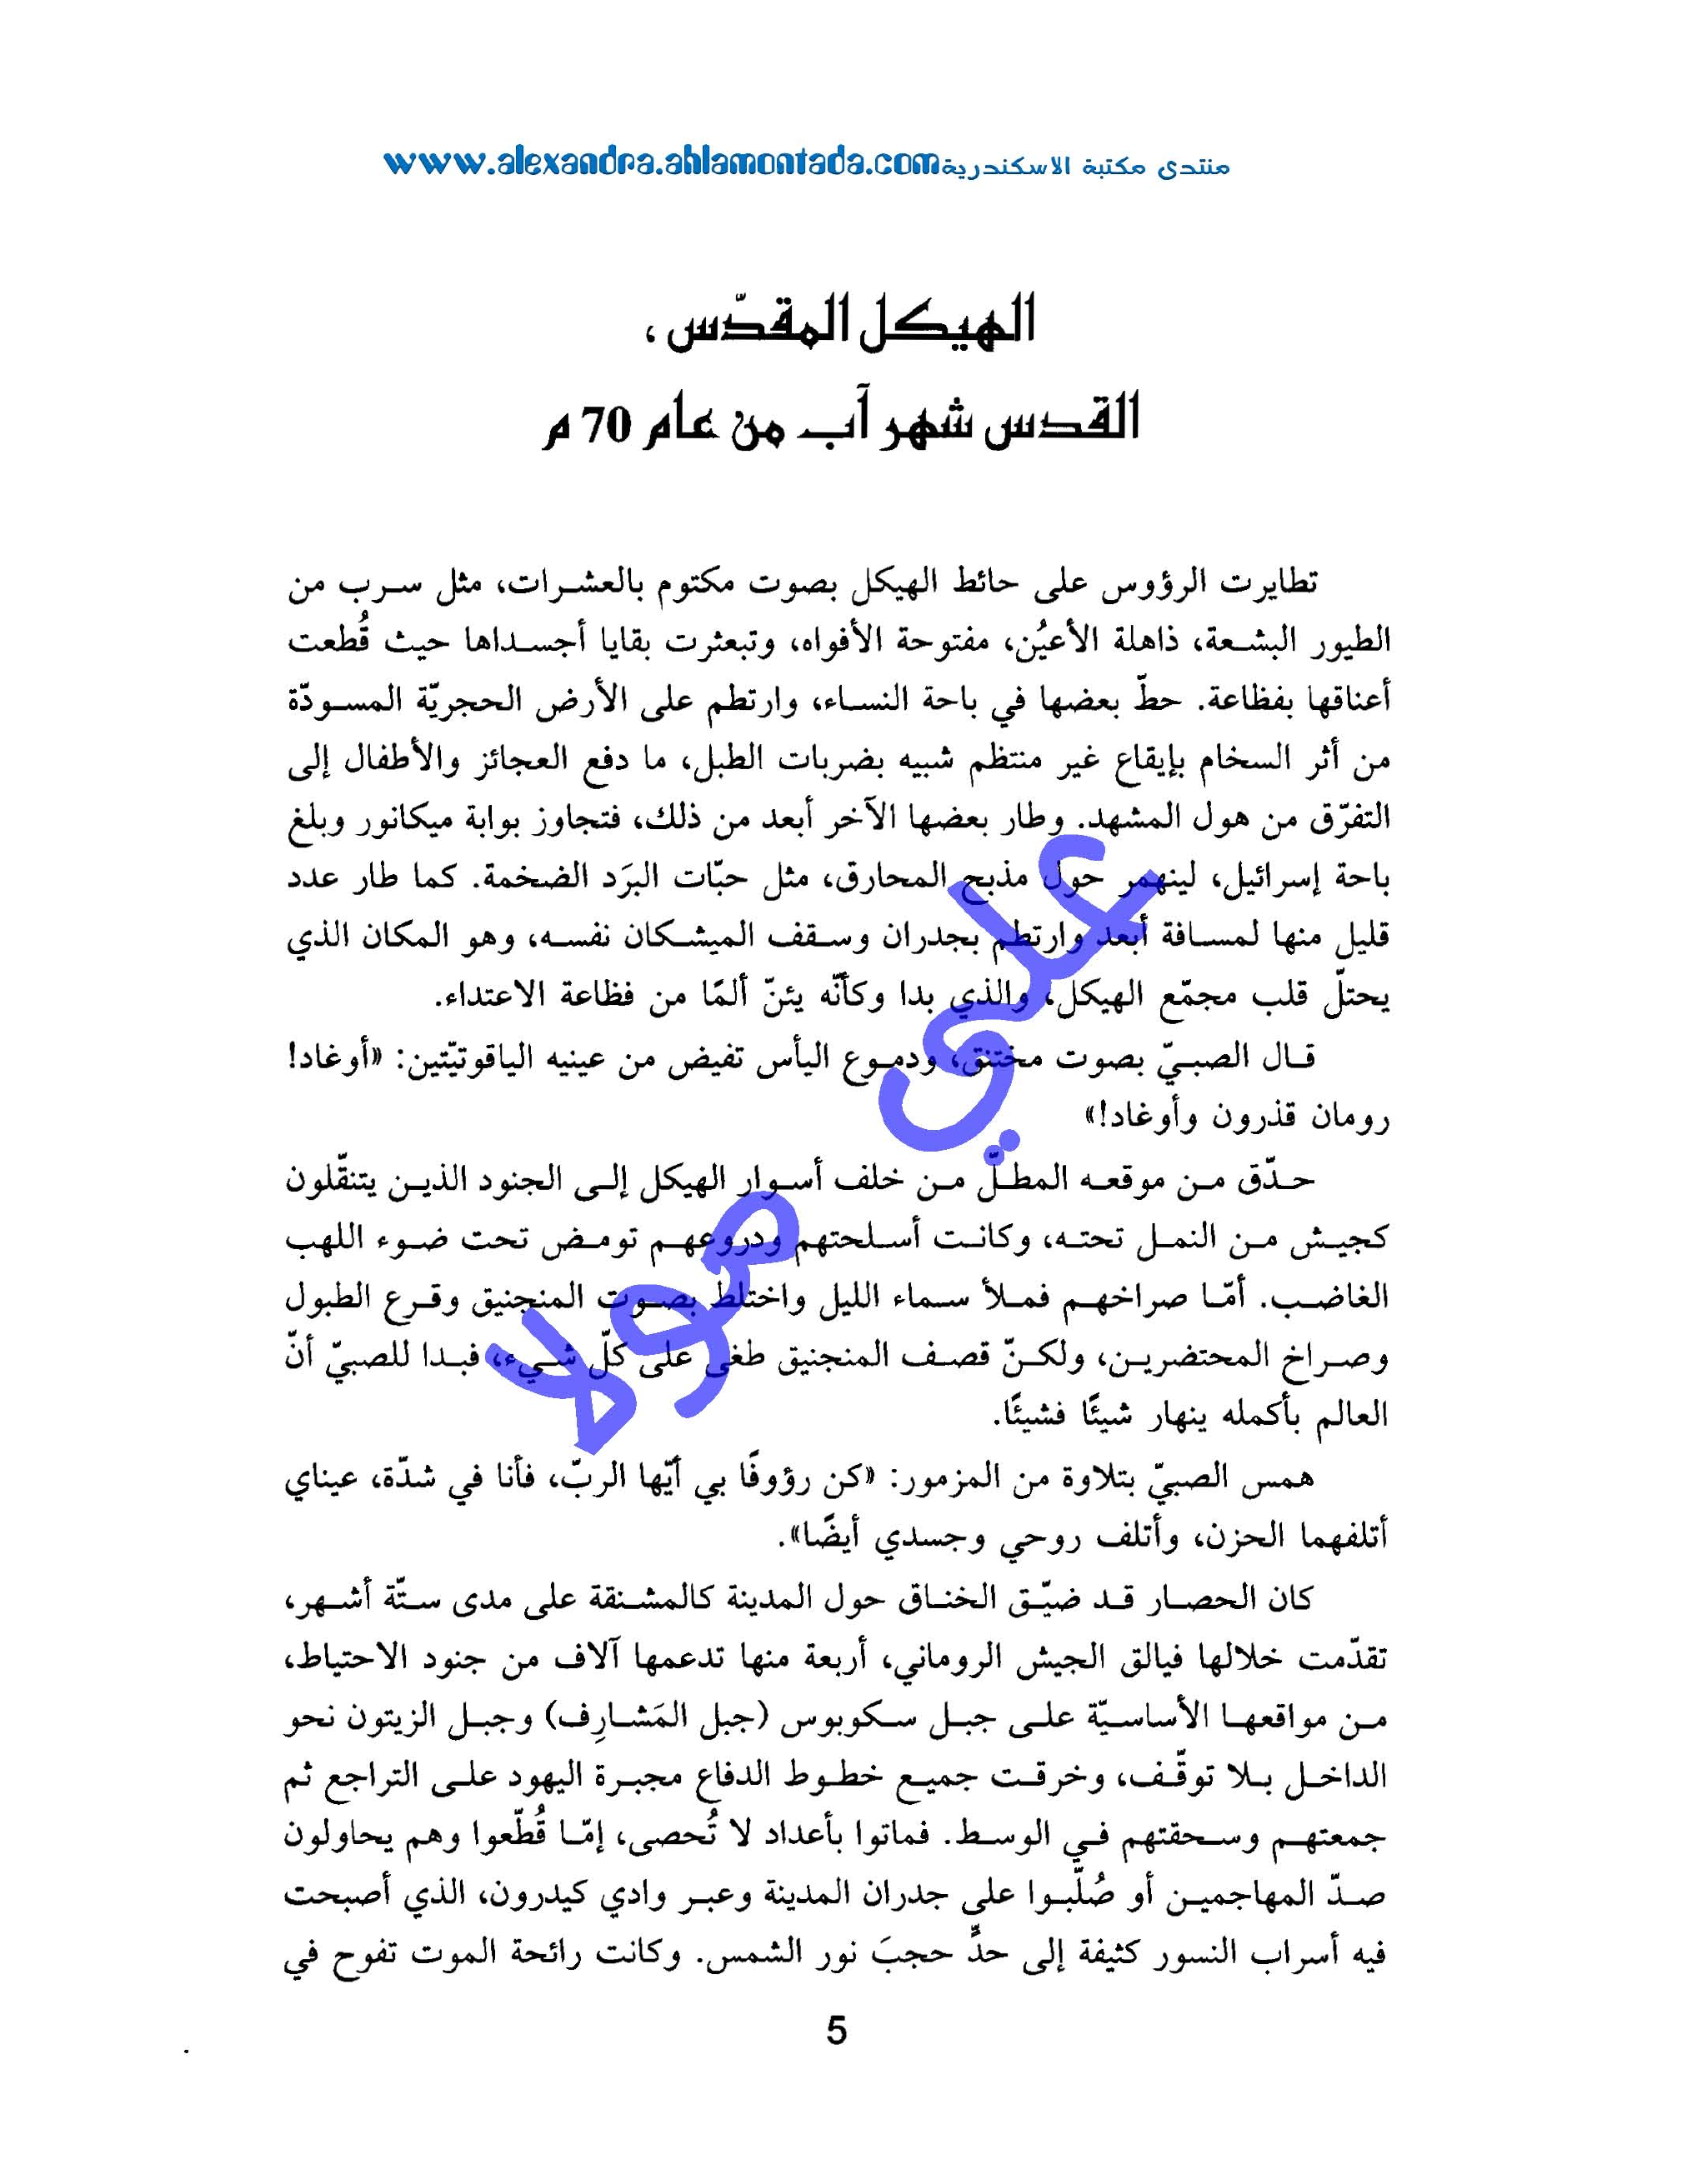 منتدى مكتبة الاسكندرية www.alexandra.ahlamontada.com
الهيكل المقدّس ،
القدس شهر آب من عام 70 م
تطايرت الرؤوس على حائط الهيكل بصوت مكتوم بالعشرات، مثل سرب من
الطيور البشعة، ذاهلة الأعيُن، مفتوحة الأفواه، وتبعثرت بقايا أجسداها حيث قُطعت
أعناقها بفظاعة. حطّ بعضها في باحة النساء، وارتطم على الأرض الحجريّة المسودّة
من أثر السخام بإيقاع غير منتظم شبيه بضربات الطبل، ما دفع العجائز والأطفال إلى
التفرّق من هول المشهد. وطار بعضها الآخر أبعد من ذلك، فتجاوز بوابة ميكانور وبلغ
باحة إسرائيل، لينهمر حول مذبح المحارق، مثل حبّات البرَد الضخمة. كما طار عدد
قليل منها لمسافة أبعد وارتطم بجدران وسقف الميشكان نفسه، وهو المكان الذي
يحتلّ قلب مجمّع الهيكل، والذي بدا وكأنّه يئنّ ألمًا من فظاعة الاعتداء.
قال الصبيّ بصوت مختنق، ودموع اليأس تفيض من عينيه الياقوتيّتين: «أوغاد!
رومان قذرون وأوغاد!»
حدّق من موقعه المطلّ من خلف أسوار الهيكل إلى الجنود الذين يتنقّلون
كجيش من النمل تحته، وكانت أسلحتهم ودروعهم تومض تحت ضوء اللهب
الغاضب. أمّا صراخهم فملأ سماء الليل واختلط بصوت المنجنيق وقرع الطبول
وصراخ المحتضرين، ولكنّ قصف المنجنيق طغى على كلّ شيء، فبدا للصبيّ أنّ
العالم بأكمله ينهار شيئًا فشيئًا.
همس الصبيّ بتلاوة من المزمور: «كن رؤوفًا بي أيّها الربّ، فأنا في شدّة، عيناي
أتلفهما الحزن، وأتلف روحي وجسدي أيضًا».
كان الحصار قد ضيّق الخناق حول المدينة كالمشنقة على مدى ستّة أشهر،
تقدّمت خلالها فيالق الجيش الروماني، أربعة منها تدعمها آلاف من جنود الاحتياط،
من مواقعها الأساسيّة على جبل سكوبوس (جبل المَشارِف) وجبل الزيتون نحو
الداخل بلا توقّف، وخرقت جميع خطوط الدفاع مجبرة اليهود على التراجع ثم
جمعتهم وسحقتهم في الوسط. فماتوا بأعداد لا تُحصى، إمّا قُطّعوا وهم يحاولون
صدّ المهاجمين أو صُلّبوا على جدران المدينة وعبر وادي كيدرون، الذي أصبحت
فيه أسراب النسور كثيفة إلى حدٍّ حجبَ نور الشمس. وكانت رائحة الموت تفوح في
5
علي مولا